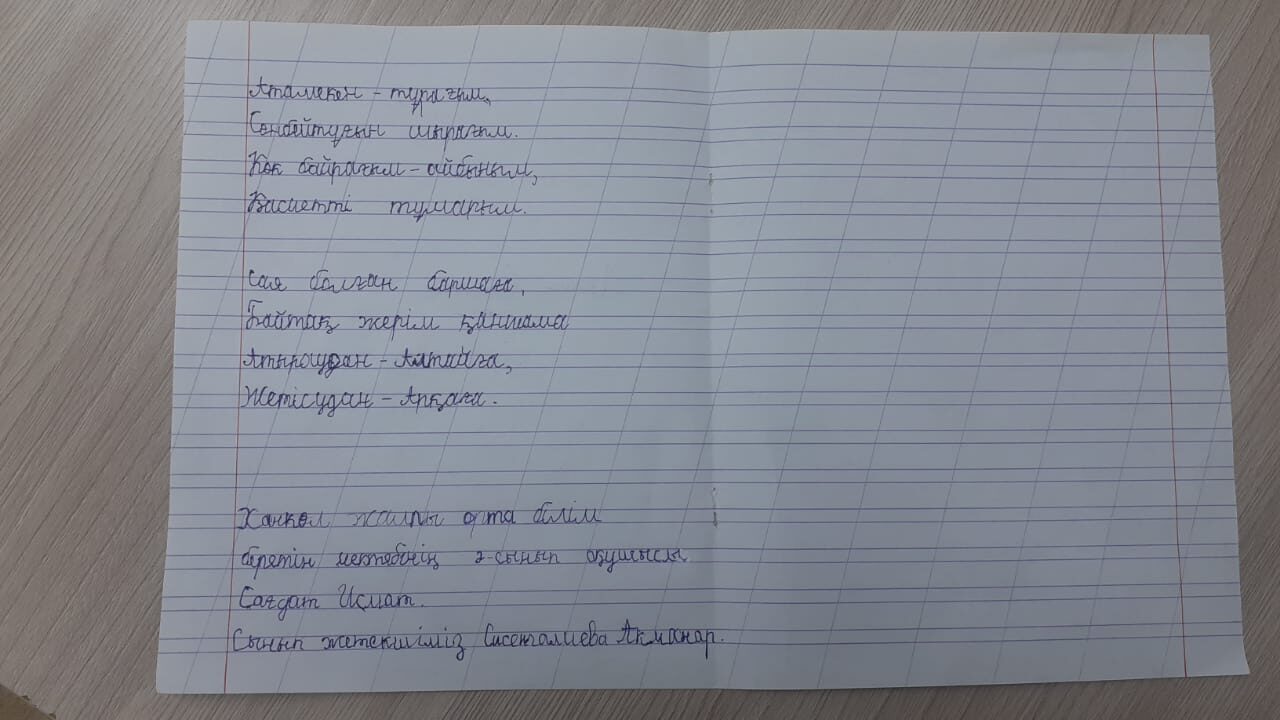 Атамекен - тұрағым,
Сөнбейтұғын шырағым.
Көк байрағым - айбыным,
Қасиетті тұмарым.
Сая болған баршаға,
Байтақ жерім қаншама
Атыраудан - Алтайға,
Жетісудан - Арқаға.
Ханкөл жалпы орта білім
беретін мектебінің 2-сынып оқушысы
Сағдат Исмат.
Сынып жетекшіміз Сисенғалиева Акманар.